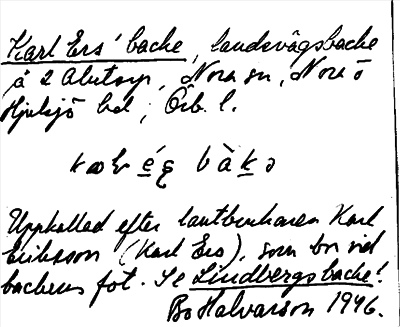 Karl Ers' backe, landsvägsbacke
å 2 Alntorp, Nora sn, Nora o
Hjulsjö hd, Örb. l.
bàkə
Uppkallad efter lantbrukaren Karl
Eriksson (Karl Ers), som bor vid
backens fot. Se Lindbergsbacke!
Bo Halvarson 1946.